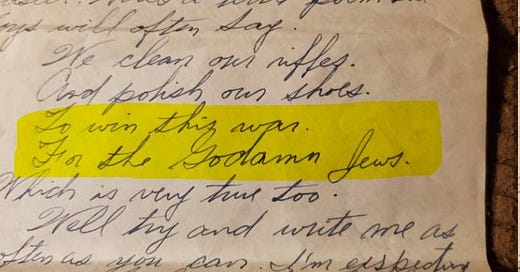 poem
boys will often say.
We clean our riffles.
And polish our shoes.
To win this war.
For the Godamn Jews.
Which is very true too.
Well try and write me as
often as you can. I'm expecting